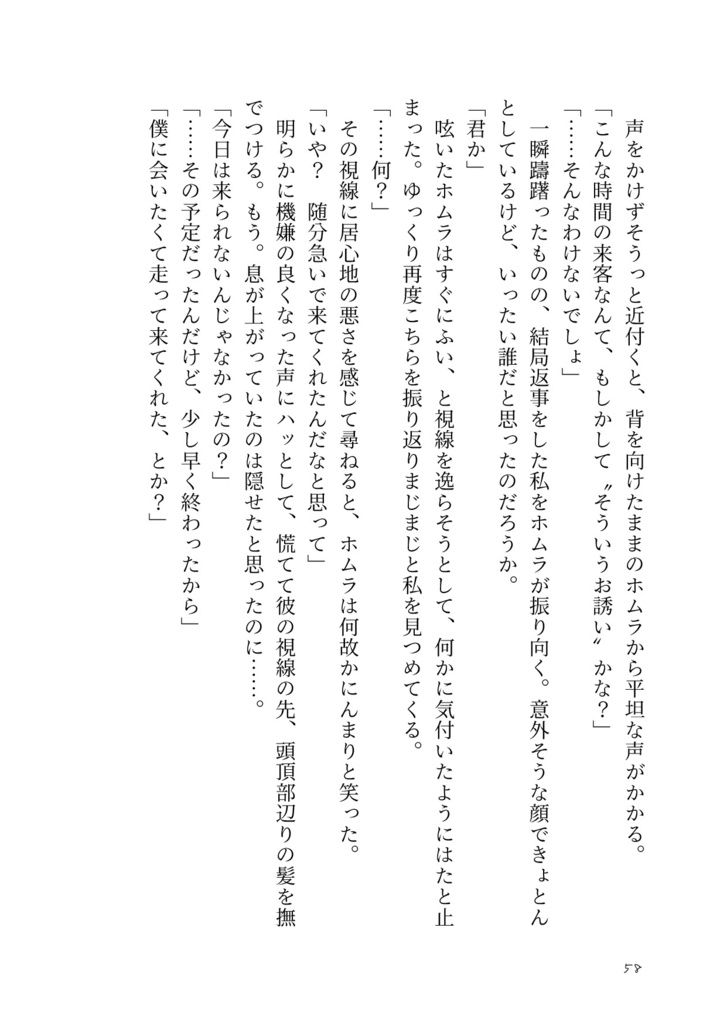 声をかけずそうっと近付くと、背を向けたままのホムラから平坦な声がかかる。
「こんな時間の来客なんて、もしかして〝そういうお誘い〟かな？」
「……そんなわけないでしょ」
　一瞬躊躇ったものの、結局返事をした私をホムラが振り向く。意外そうな顔できょとん
としているけど、いったい誰だと思ったのだろうか。
「君か」
　呟いたホムラはすぐにふい、と視線を逸らそうとして、何かに気付いたようにはたと止
まった。ゆっくり再度こちらを振り返りまじまじと私を見つめてくる。
「……何？」
　その視線に居心地の悪さを感じて尋ねると、ホムラは何故かにんまりと笑った。
「いや？　随分急いで来てくれたんだなと思って」
　明らかに機嫌の良くなった声にハッとして、慌てて彼の視線の先、頭頂部辺りの髪を撫
でつける。もう。息が上がっていたのは隠せたと思ったのに……。
「今日は来られないんじゃなかったの？」
「……その予定だったんだけど、少し早く終わったから」
「僕に会いたくて走って来てくれた、とか？」
58